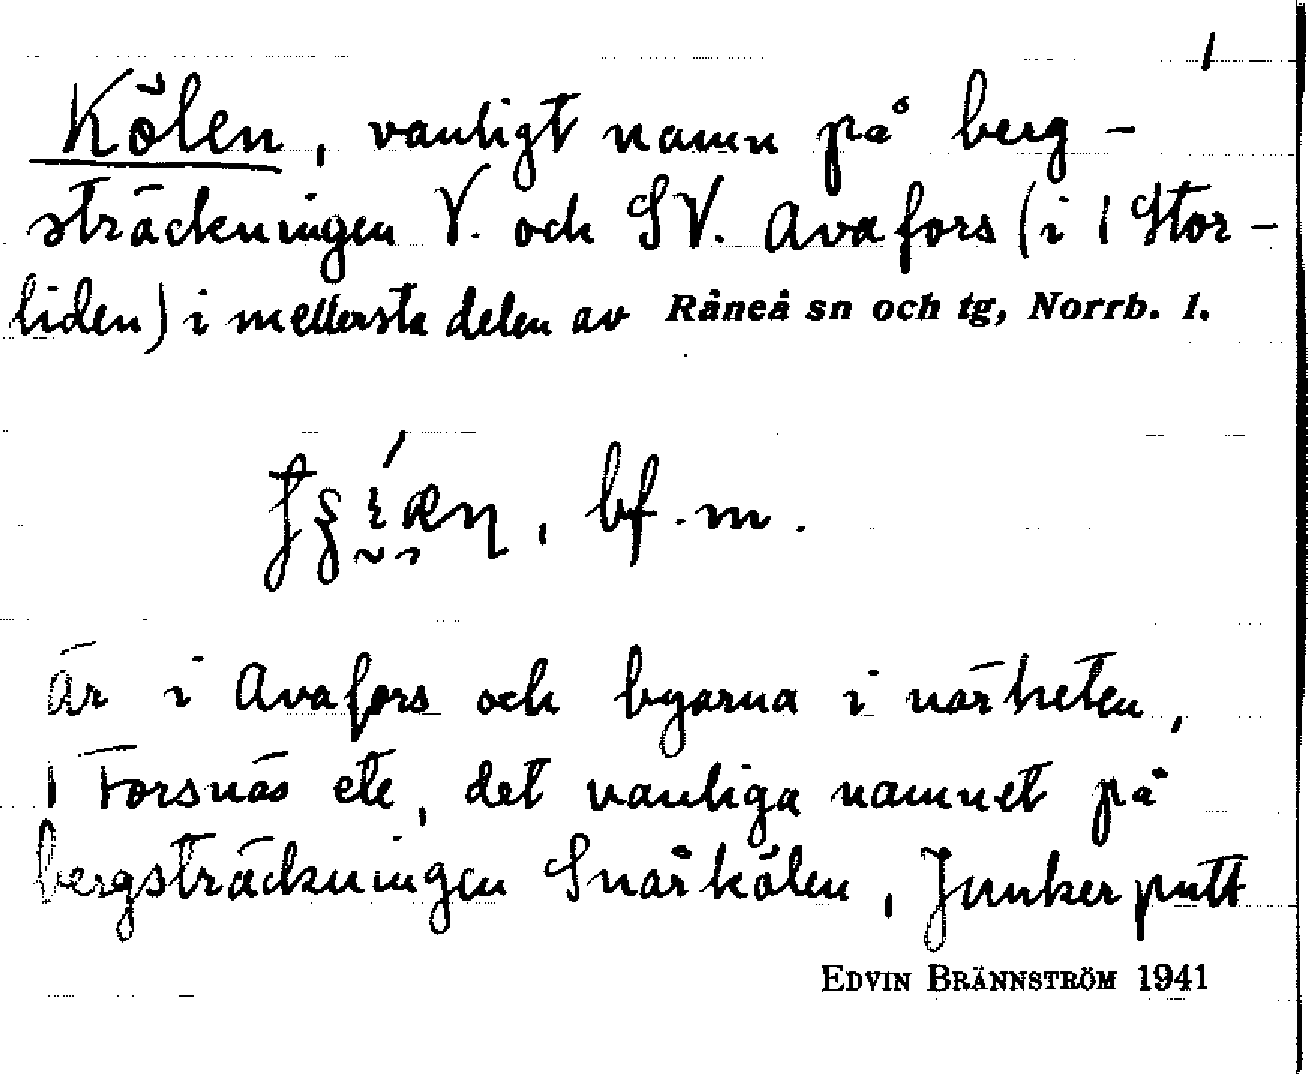 1
Kölen, vanligt namn på berg-
sträckningen V. och SV. Avafors (i I Stor-
liden) i mellersta delen av Råneå sn och tg, Norrb. l.
, bf. m.
är i Avafors och byarna i närheten,
I Forsnäs etc, det vanliga namnet på
bergsträckningen Snårkölen, Junkerputt
EDVIN BRÄNNSTRÖM 1941